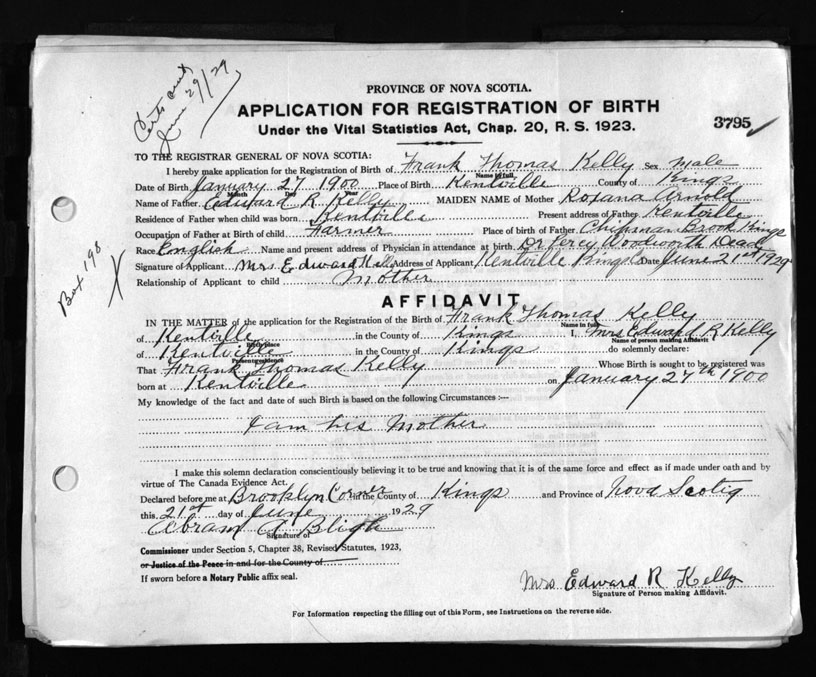 Certs and
June 29/29
PROVINCE OF NOVA SCOTIA.
APPLICATION FOR REGISTRATION OF BIRTH
Under the Vital Statistics Act, Chap. 20, R. S. 1923.
3795
TO THE REGISTRAR GENERAL OF NOVA SCOTIA:
I hereby make application for the Registration of Birth of Frank Thomas Kelly Sex male
Name in full,
Date of Birth January 27 1900 Place of Birth Kentville County of Kings
Month Day Year
Name of Father Edward R Kelly MAIDEN NAME of Mother Roxana Arnold
Residence of Father when child was born Kentville Present address of Father Kentville
Occupation of Father at Birth of child Farmer Place of birth of Father Chipman Brook Kings
Race English Name and present address of Physician in attendance at birth Dr Percy Woodworth Dead
Signature of Applicant Mrs Edward Address of Applicant Kentville Kings Date June 21st 1929
Relationship of Applicant to child Mother
Box 198
X
AFFIDAVIT
IN THE MATTER of the application for the Registration of the Birth of Frank Thomas Kelly
Name in full
of Kentville in the County of Kings I, Mrs Edward R Kelly
Birth place Name of person making Affidavit
of Kentville in the County of Kings do solemnly declare:
Present residence
That Frank Thomas Kelly Whose Birth is sought to be registered was
born at Kentville on January 27th 1900
My knowledge of the fact and date of such Birth is based on the following Circumstances :—
I am his Mother
I make this solemn declaration conscientiously believing it to be true and knowing that it is of the same force and effect as if made under oath and by
virtue of The Canada Evidence Act.
Declared before me at Brooklyn Corner in the County of Kings and Province of Nova Scotia
this 21st day of June 1929
Abram A Bligh
Signature of
Commissioner under Section 5, Chapter 38, Revised Statutes, 1923,
or Justice of the Peace in and for the County of
If sworn before a Notary Public affix seal.
Mrs Edward R Kelly
Signature of Person making Affidavit.
For Information respecting the filling out of this Form, see Instructions on the reverse side.